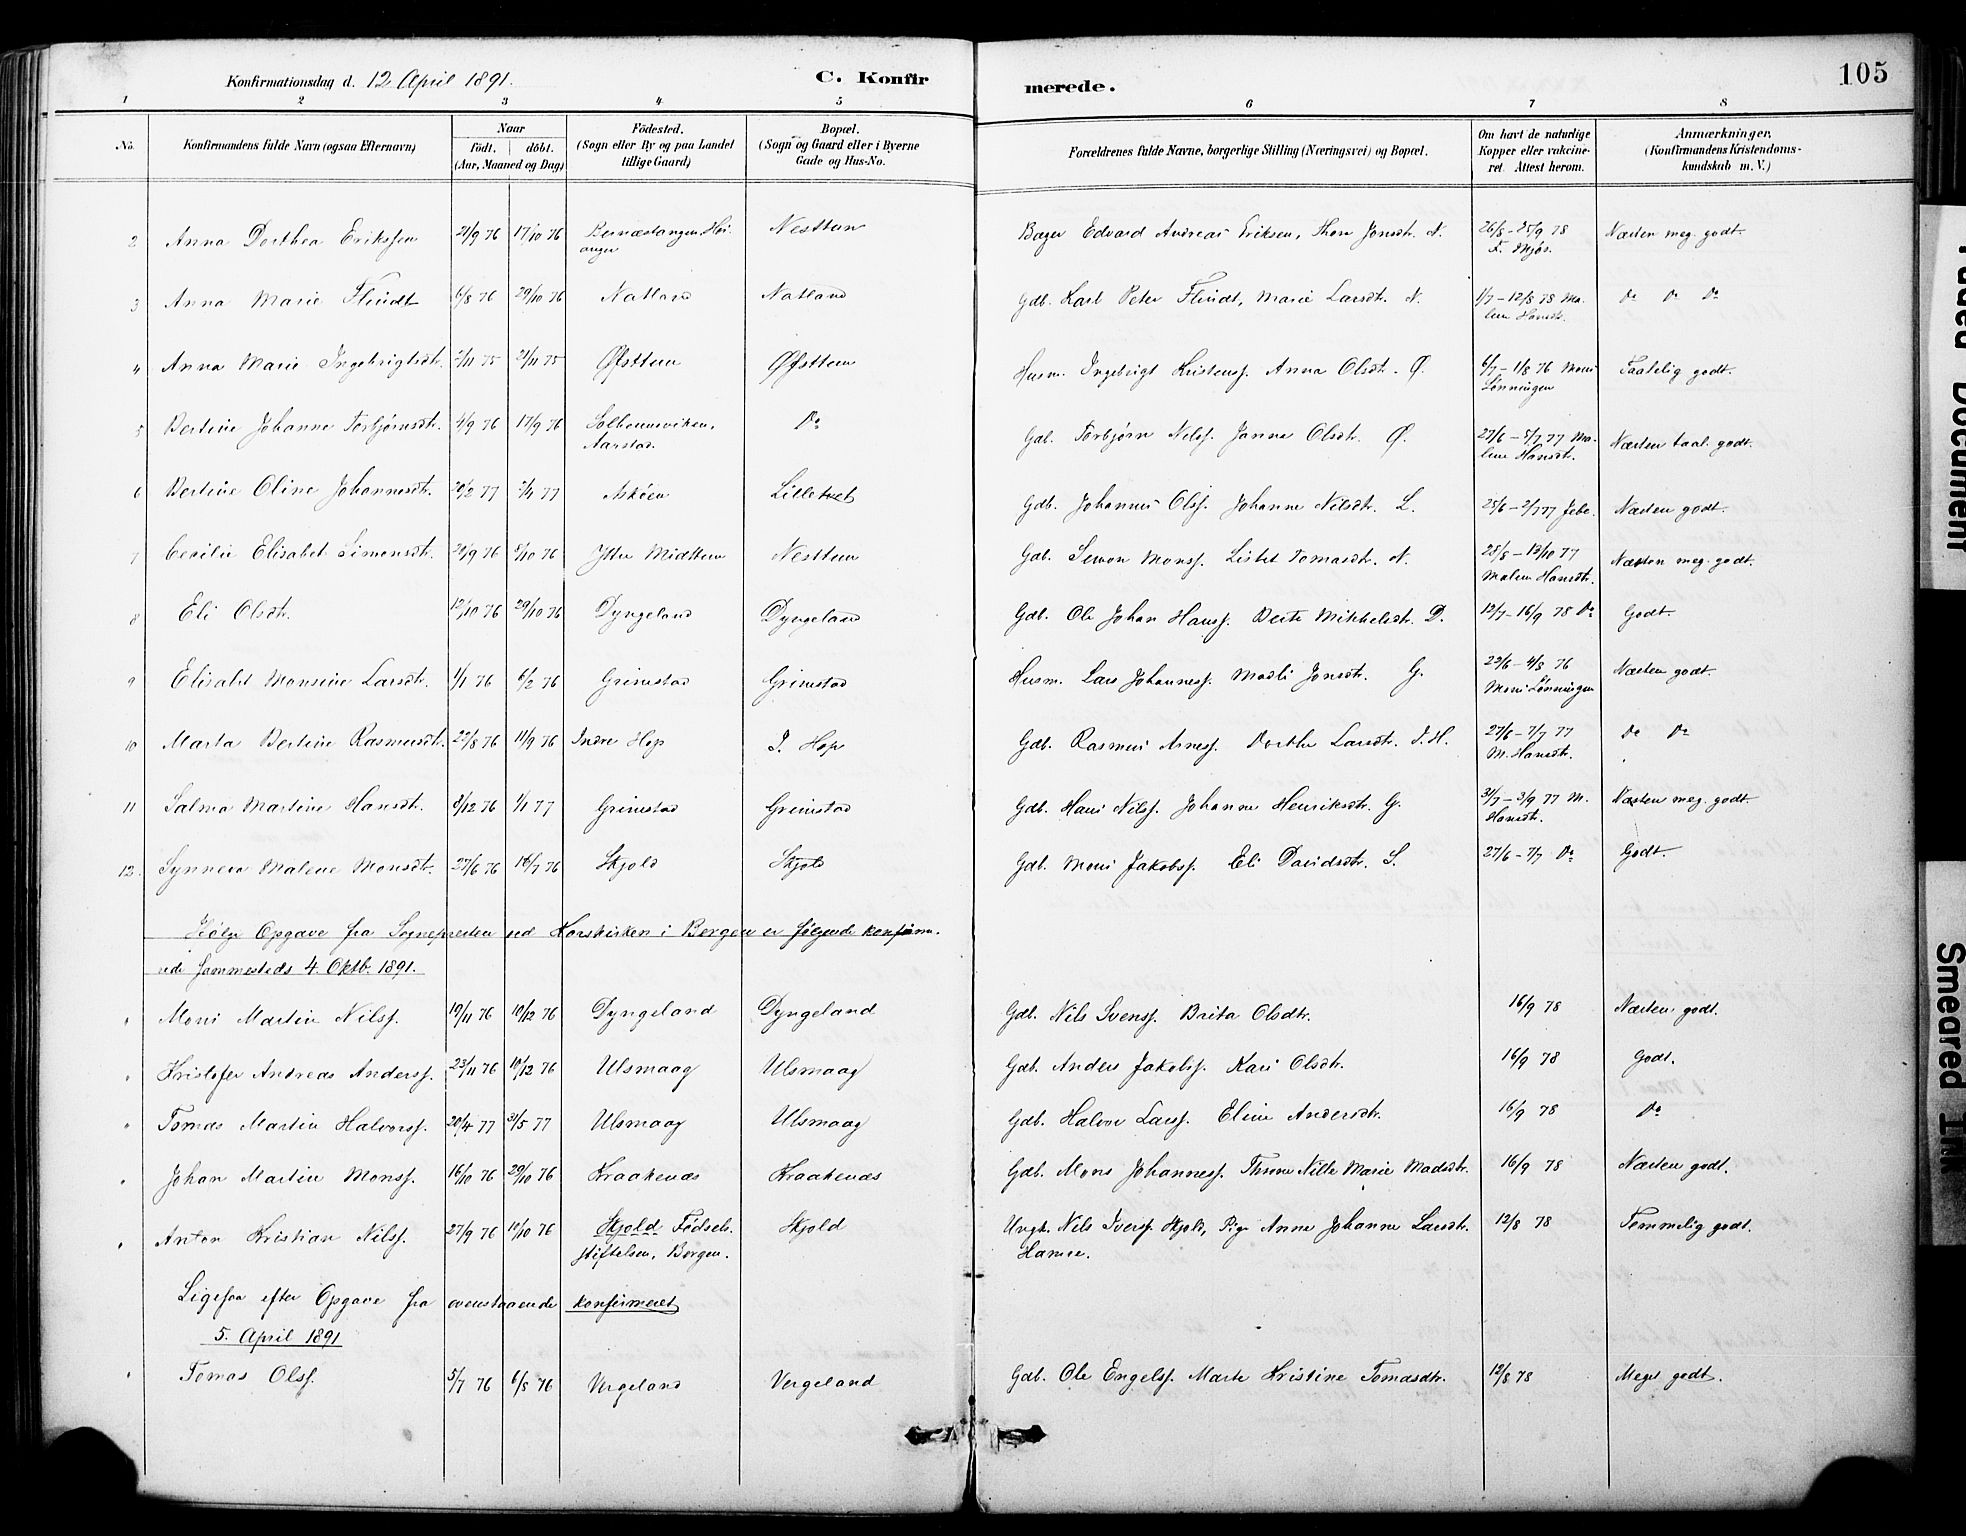 Konfirmationsdag d. 12 April 1891. C. Konfir merede. 105
1 2 3 4 5 6 7 8
No. Konfirmandens fulde Navn (ogsaa Efternavn) Naar født. døbt. (Aar, Maaned og Dag) Fødested. (Sogn eller By og paa Landet tillige Gaard) Bopæl. (Sogn og Gaard eller i Byerne Gade og Hus-No. Forældrenes fulde Navne, borgerlige Stilling (Næringsvei) og Bopæl. Om havt de naturlige Kopper eller vakcineret. Attest herom. Anmærkninger, (Konfirmandens Kristendomskundskab m. V.)
2 Anna Dorthea Eriksen 21/9 76 17/10 76 Nesttun Bager Edvard Andreas Eriksen, Thora Jonsdtr. N. 26/8 - 25/9 78 F. Mjøs. Næsten meg. godt.
3 Anna Marie Flindt 6/8 76 29/10 76 Natland Natland Gdb. Karl Peter Flindt, Marie Larsdtr. N. 1/7 - 12/8 78 Malene Hansdtr. Do Do Do
4 Anna Marie Ingebrigtsdtr. 2/11 75 21/11 75 Øfsttun Øfsttun Husm. Ingebrigt Kristensf. Anna Olsdtr. Ø. 6/7 - 11/8 76 Mons Lønningen Taalelig godt.
5 Bertine Johanne Torbjørnsdtr. 4/9 76 17/9 76 Solheimsviken, Aarstad. Do Gdb. Torbjørn Nilsf. Janna Olsdtr. Ø. 27/6 - 5/7 77 Malene Hansdtr. Næsten taal. godt.
6 Bertine Oline Johannesdtr. 20/2 77 2/4 77 Askøen Lilletvet Gdb. Johannes Olsf. Johanne Nilsdtr. L. 25/6 - 2/7 77 Jebe. Næsten godt.
7 Cecilie Elisabet Simonsdtr. 20/9 76 8/10 76 Ytre Midttun Nesttun Gdb. Simon Monsf. Lisbet Tomasdtr. N. 28/8 - 13/10 77 Malene Hansdtr. Næsten meg. godt.
8 Eli Olsdtr. 12/10 76 29/10 76 Dyngeland Dyngeland Gdb. Ole Johan Hansf. Berte Mikkelsdtr. D. 12/7 - 16/9 78 Do Godt.
9 Elisabet Monsine Larsdtr. 1/1 76 6/2 76 Grimstad Grimstad Husm. Lars Johannesf. Madli Jonsdtr. G. 29/6 - 4/8 76 Mons Lønningen Næsten godt.
10 Marta Bertine Rasmusdtr. 22/8 76 11/9 76 Indre Hop I. Hop Gdb. Rasmus Arnesf. Dorthe Larsdtr. I.H. 27/6 - 7/7 77 M. Hansdtr. Do Do
11 Salma Martine Hansdtr. 8/12 76 1/1 77 Grimstad Grimstad Gdb. Hans Nilsf. Johanne Henriksdtr. G. 31/7 - 3/9 77 M. Hansdtr. Næsten meg. godt.
12. Synneva Malene Monsdtr. 27/6 76 16/7 76 Skjold Skjold Gdb. Mons Jakobsf. Eli Davidsdtr. S. 27/6 - 7/7 Do Godt.
Ifølge Opgave fra Sognepresten ved Korskirken i Bergen er følgende konfirmerede sammesteds 4. Oktb. 1891.
" Mons Martin Nilsf. 19/11 76 10/12 76 Dyngeland Dyngeland Gdb. Nils Svensf. Brita Olsdtr. 16/9 78 Næsten godt.
" Kristofer Andreas Andersf. 23/11 76 10/12 76 Ulsmaag Ulsmaag Gdb. Anders Jakobsf. Kari Olsdtr. 16/9 78 Godt.
" Tomas Martin Halvorsf. 20/4 77 31/5 77 Ulsmaag Ulsmaag Gdb. Halvor Larsf. Eline Andersdtr. 16/9 78 Do
" Johan Martin Monsf. 16/10 76 29/10 76 Kraakenæs Kraakenæs Gdb. Mons Johannesf. Nille Marie Madsdtr. 16/9 78 Næsten godt.
" Anton Kristian Nilsf. 27/9 76 10/10 76 Skjold Fødselsstiftelsen, Bergen. Skjold Ungk. Nils Iversf. Skjold, Pige Anna Johanne Larsdtr. 12/8 78 Temmelig godt.
Ligesaa efter Opgave fra ovenstaaende konfirmeret
5. April 1891
" Tomas Olsf. 5/7 76 6/8 76 Vergeland Vergeland Gdb. Ole Engelsf. Marte Kristine Tomasdtr. 12/8 78 Meget godt.
Faded Document
Smeared Ink